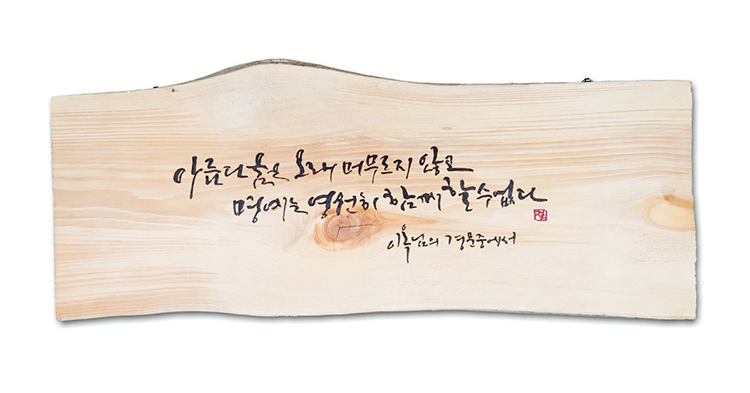 아름다움은 오래 머무르지 않고
명예는 영원히 함께 할 수 없다
이옥님의 경문중에서